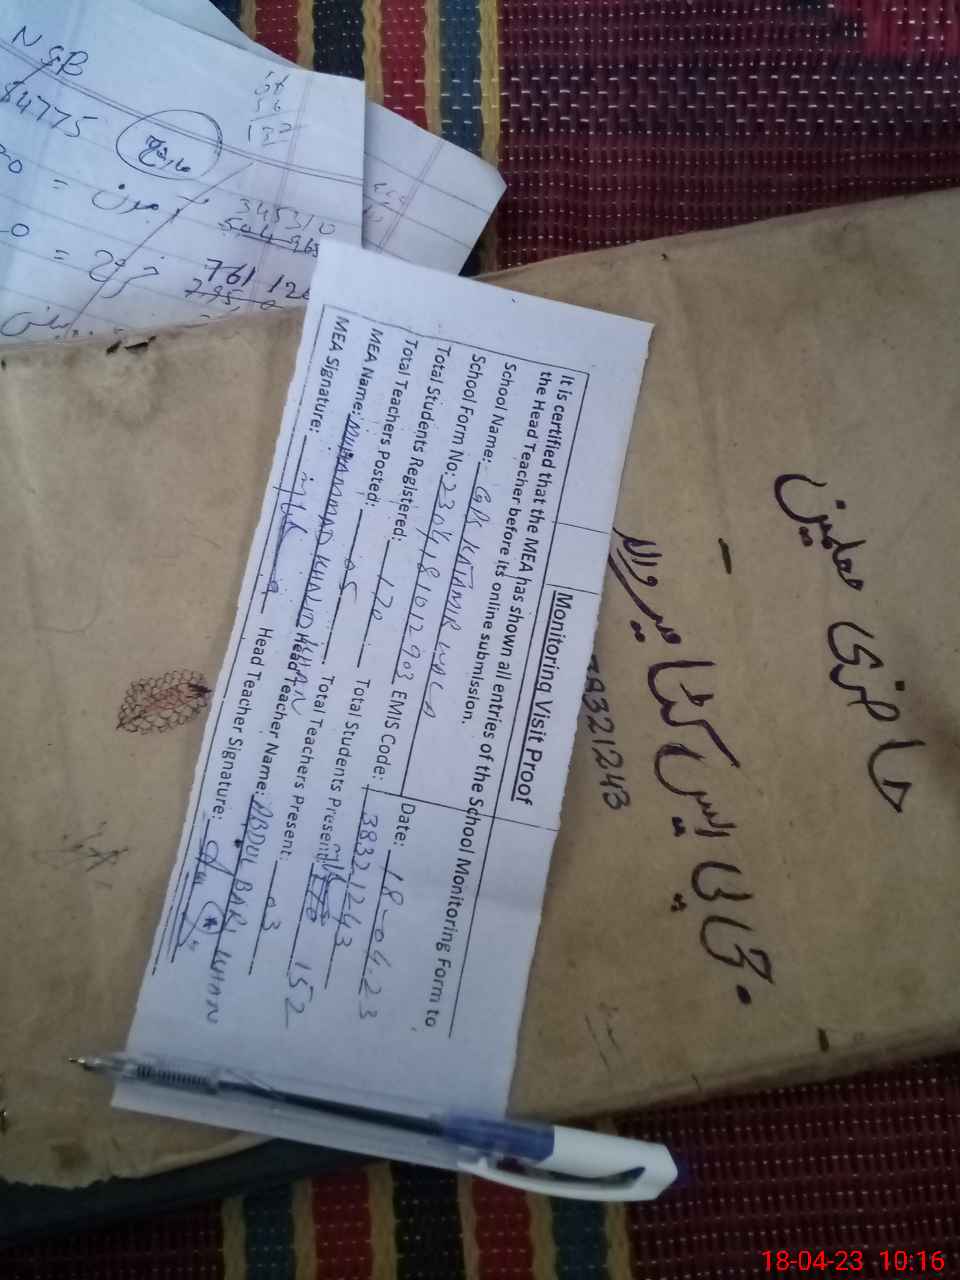 Monitoring Visit Proof
It is certified that the MEA has shown all entries of the School Monitoring Form to
the Head Teacher before its online submission.
School Name: GPS KATAMIR WALA Date: 18-04-23
School Form No: 2304181012903 EMIS Code: 38321243
Total Students Registered: 170 Total Students Present: 152
Total Teachers Posted: 05 Total Teachers Present: 03
MEA Name: MUHAMMAD KHALID KHAN Head Teacher Name: ABDUL BARI KHAN
MEA Signature: Head Teacher Signature:
حاضری معلمین
جی پی ایس کٹا میر والا
38321243
NSB
54775
345310
504965
761 120
795
18-04-23 10:16